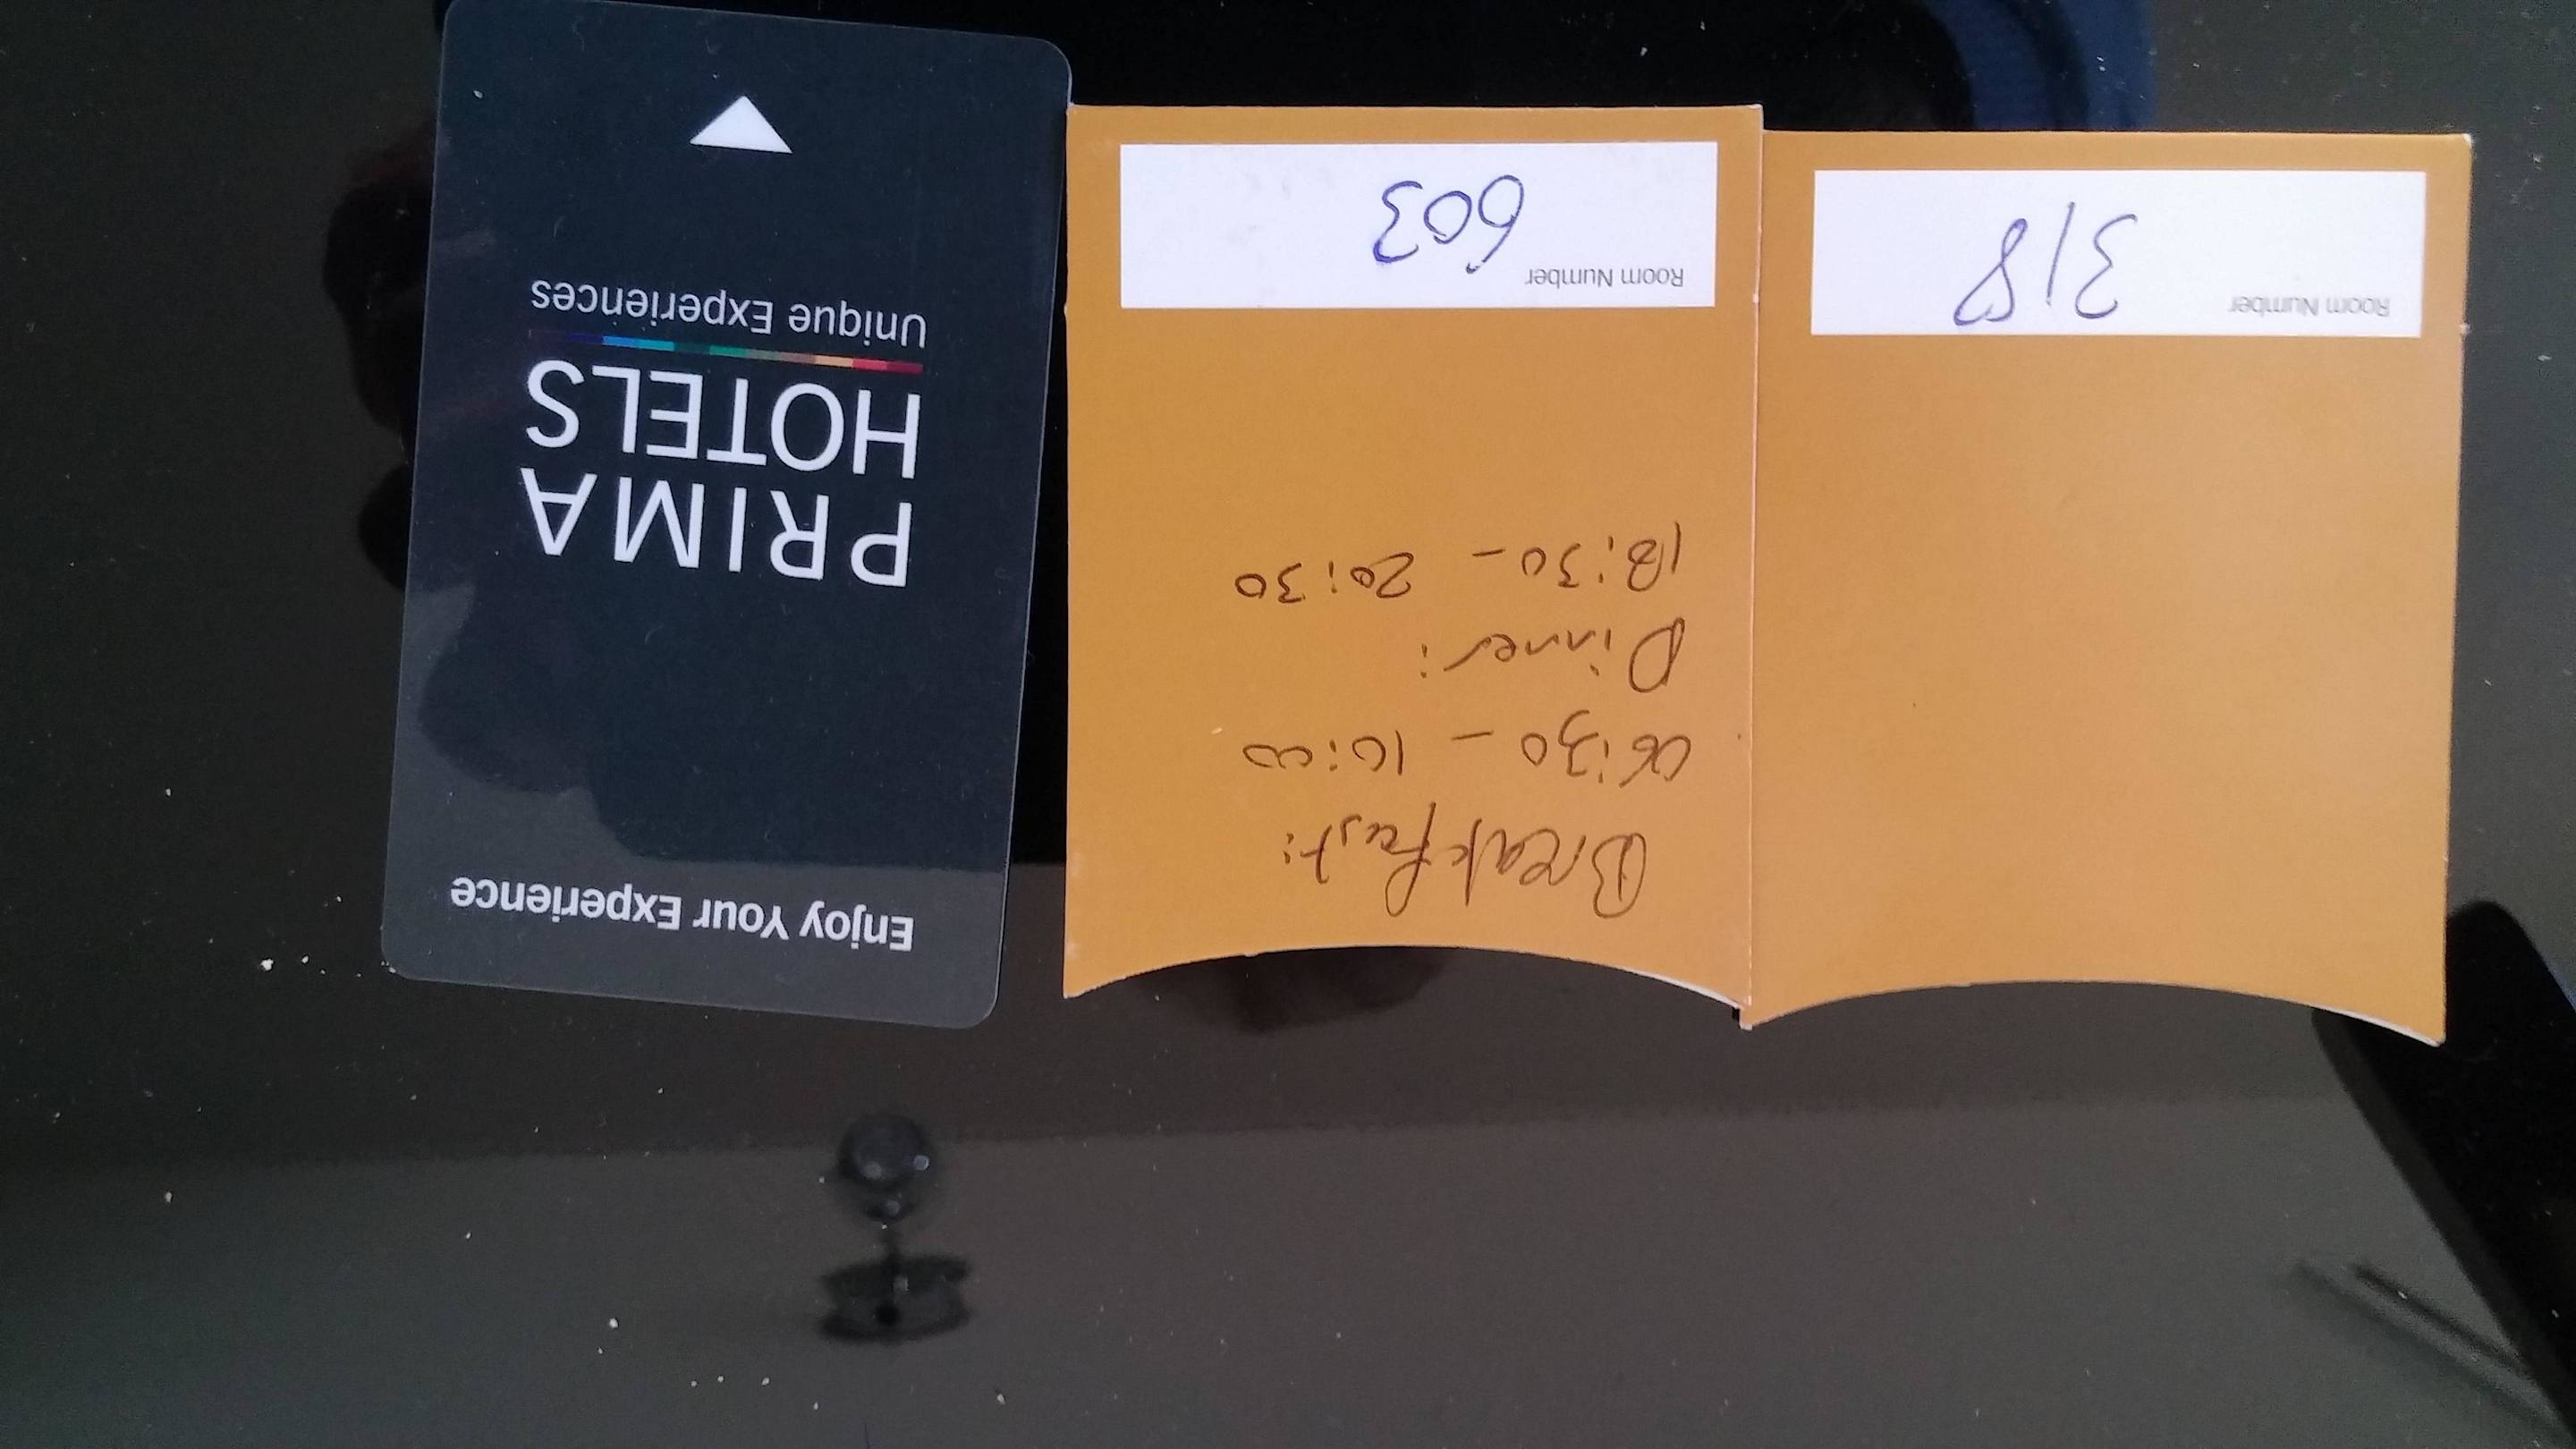 Room Number 318
Breakfast:
06:30 - 10:00
Dinner:
18:30 - 20:30
Room Number 603
Enjoy Your Experience
PRIMA
HOTELS
Unique Experiences